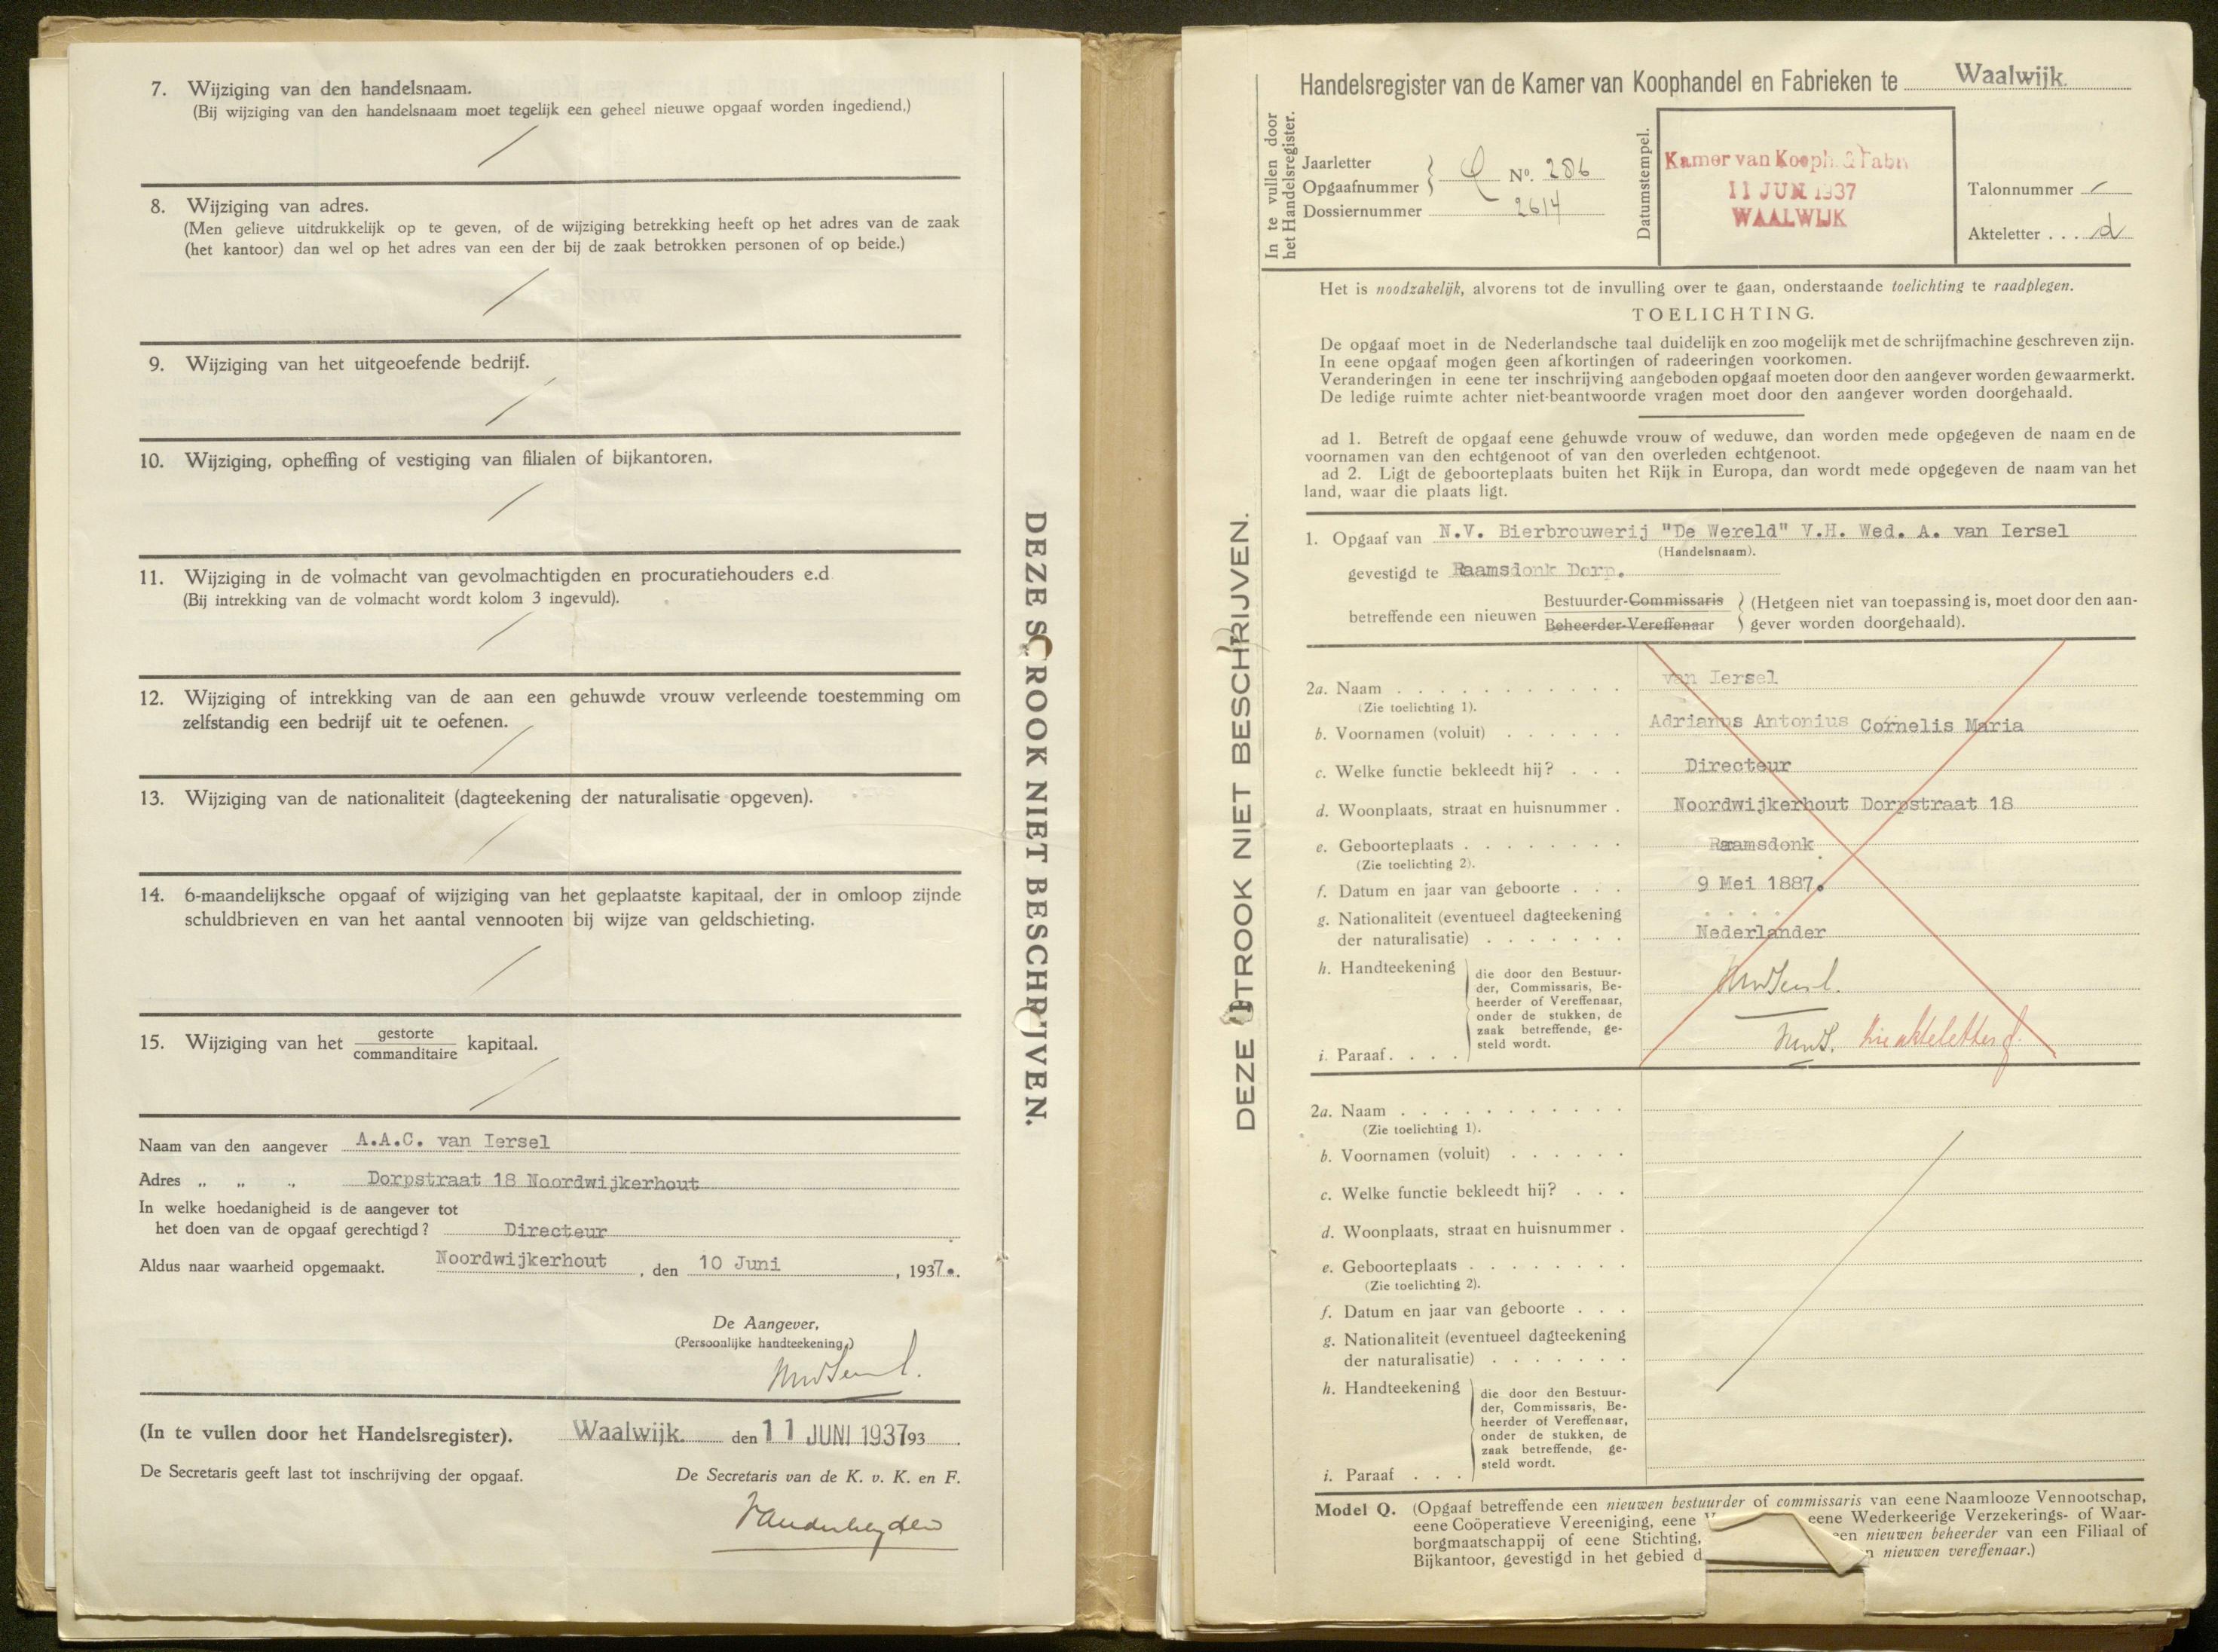 7. Wijziging van den handelsnaam.
(Bij wijziging van den handelsnaam moet tegelijk een geheel nieuwe opgaaf worden ingediend.)
8. Wijziging van adres.
(Men gelieve uitdrukkelijk op te geven, of de wijziging betrekking heeft op het adres van de zaak
(het kantoor) dan wel op het adres van een der bij de zaak betrokken personen of op beide.)
9. Wijziging van het uitgeoefende bedrijf.
10. Wijziging, opheffing of vestiging van filialen of bijkantoren.
11. Wijziging in de volmacht van gevolmachtigden en procuratiehouders e.d.
(Bij intrekking van de volmacht wordt kolom 3 ingevuld).
12. Wijziging of intrekking van de aan een gehuwde vrouw verleende toestemming om
zelfstandig een bedrijf uit te oefenen.
13. Wijziging van de nationaliteit (dagteekening der naturalisatie opgeven).
14. 6-maandelijksche opgaaf of wijziging van het geplaatste kapitaal, der in omloop zijnde
schuldbrieven en van het aantal vennooten bij wijze van geldschieting.
15. Wijziging van het gestorte
commanditaire kapitaal.
Naam van den aangever A.A.C. van Iersel
Adres „ „ „ Dorpstraat 18 Noordwijkerhout
In welke hoedanigheid is de aangever tot
het doen van de opgaaf gerechtigd? Directeur
Aldus naar waarheid opgemaakt. Noordwijkerhout, den 10 Juni, 1937.
De Aangever,
(Persoonlijke handteekening,)
(In te vullen door het Handelsregister). Waalwijk. den 11 JUNI 1937 93
De Secretaris geeft last tot inschrijving der opgaaf. De Secretaris van de K. v. K. en F.
Vanderheyden
DEZE STROOK NIET BESCHRIJVEN.
DEZE STROOK NIET BESCHRIJVEN.
Handelsregister van de Kamer van Koophandel en Fabrieken te Waalwijk.
In te vullen door
het Handelsregister.
Jaarletter
Opgaafnummer No. 286
Dossiernummer 2614
Datumstempel.
Kamer van Kooph. & Fabr
11 JUN 1937
WAALWIJK
Talonnummer
Akteletter . . . d
Het is noodzakelijk, alvorens tot de invulling over te gaan, onderstaande toelichting te raadplegen.
TOELICHTING.
De opgaaf moet in de Nederlandsche taal duidelijk en zoo mogelijk met de schrijfmachine geschreven zijn.
In eene opgaaf mogen geen afkortingen of radeeringen voorkomen.
Veranderingen in eene ter inschrijving aangeboden opgaaf moeten door den aangever worden gewaarmerkt.
De ledige ruimte achter niet-beantwoorde vragen moet door den aangever worden doorgehaald.
ad 1. Betreft de opgaaf eene gehuwde vrouw of weduwe, dan worden mede opgegeven de naam en de
voornamen van den echtgenoot of van den overleden echtgenoot.
ad 2. Ligt de geboorteplaats buiten het Rijk in Europa, dan wordt mede opgegeven de naam van het
land, waar die plaats ligt.
1. Opgaaf van N.V. Bierbrouwerij "De Wereld" V.H. Wed. A. van Iersel
(Handelsnaam).
gevestigd te Raamsdonk Dorp.
betreffende een nieuwen Bestuurder-Commissaris
Beheerder-Vereffenaar
(Hetgeen niet van toepassing is, moet door den aan-
gever worden doorgehaald).
2a. Naam . . . . van Iersel
(Zie toelichting 1).
b. Voornamen (voluit) . . . . Adrianus Antonius Cornelis Maria
c. Welke functie bekleedt hij? . . . Directeur
d. Woonplaats, straat en huisnummer . Noordwijkerhout Dorpstraat 18
e. Geboorteplaats . . . . Raamsdonk
(Zie toelichting 2).
f. Datum en jaar van geboorte . . . 9 Mei 1887.
g. Nationaliteit (eventueel dagteekening
der naturalisatie) . . . . Nederlander
h. Handteekening
die door den Bestuur-
der, Commissaris, Be-
heerder of Vereffenaar,
onder de stukken, de
zaak betreffende, ge-
steld wordt.
i. Paraaf. . . . zie akteletter f.
2a. Naam . . . .
(Zie toelichting 1).
b. Voornamen (voluit) . . . .
c. Welke functie bekleedt hij? . . .
d. Woonplaats, straat en huisnummer .
e. Geboorteplaats . . . .
(Zie toelichting 2).
f. Datum en jaar van geboorte . . .
g. Nationaliteit (eventueel dagteekening
der naturalisatie) . . . .
h. Handteekening
die door den Bestuur-
der, Commissaris, Be-
heerder of Vereffenaar,
onder de stukken, de
zaak betreffende, ge-
steld wordt.
i. Paraaf . . .
Model Q. (Opgaaf betreffende een nieuwen bestuurder of commissaris van eene Naamlooze Vennootschap,
eene Coöperatieve Vereeniging, eene eene Wederkeerige Verzekerings- of Waar-
borgmaatschappij of eene Stichting, een nieuwen beheerder van een Filiaal of
Bijkantoor, gevestigd in het gebied nieuwen vereffenaar.)